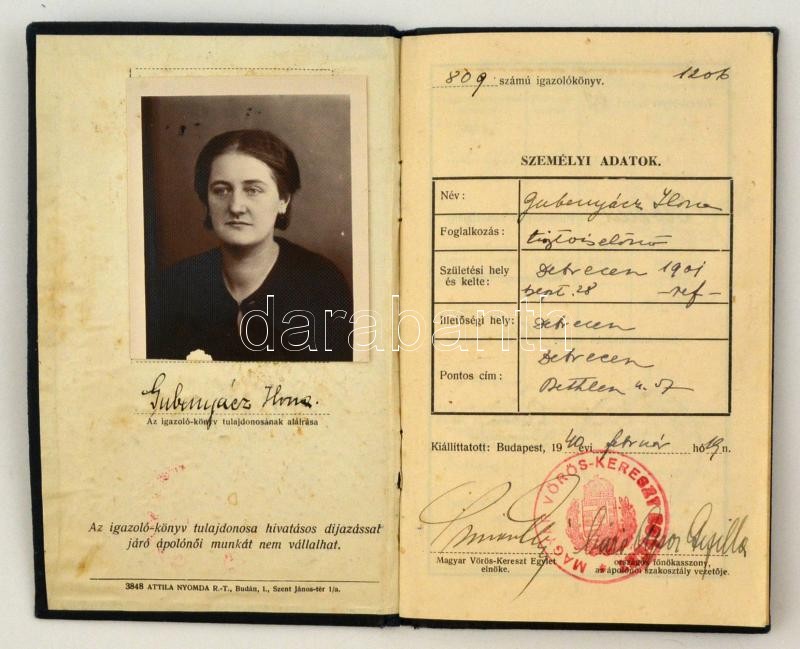 Gubenyácz Ilona.
Az igazoló-könyv tulajdonosának aláírása
Az igazoló-könyv tulajdonosa hivatásos díjazással
járó ápolónői munkát nem vállalhat.
3848 ATTILA NYOMDA R.-T., Budán, I., Szent János-tér 1/a.
809 számú igazolókönyv. 1206
SZEMÉLYI ADATOK.
Név: Gubenyácz Ilona
Foglalkozás: tisztviselőnő
Születési hely Debrecen 1901
és kelte: 28 -ref-
Illetőségi hely: Debrecen
Debrecen
Pontos cím: Bethlen u. 57
Kiállíttatott: Budapest, 1940 évi február hó 19 n.
MAGYAR VÖRÖS-KERESZT
Magyar Vörös-Kereszt Egylet
elnöke.
országos főnökasszony,
az ápolónői szakosztály vezetője.
darabanth